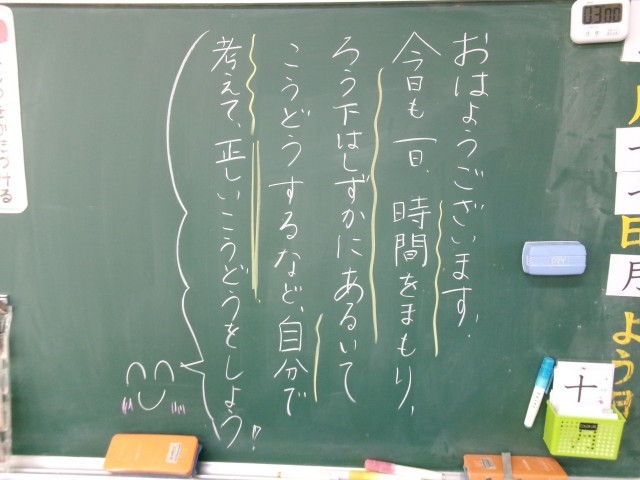 おはようございます！
今日も一日、時間をまもり、
ろう下はしずかにあるいて
こうどうするなど、自分で
考えて、正しいこうどうをしよう！！
十
月
日
月
よう日